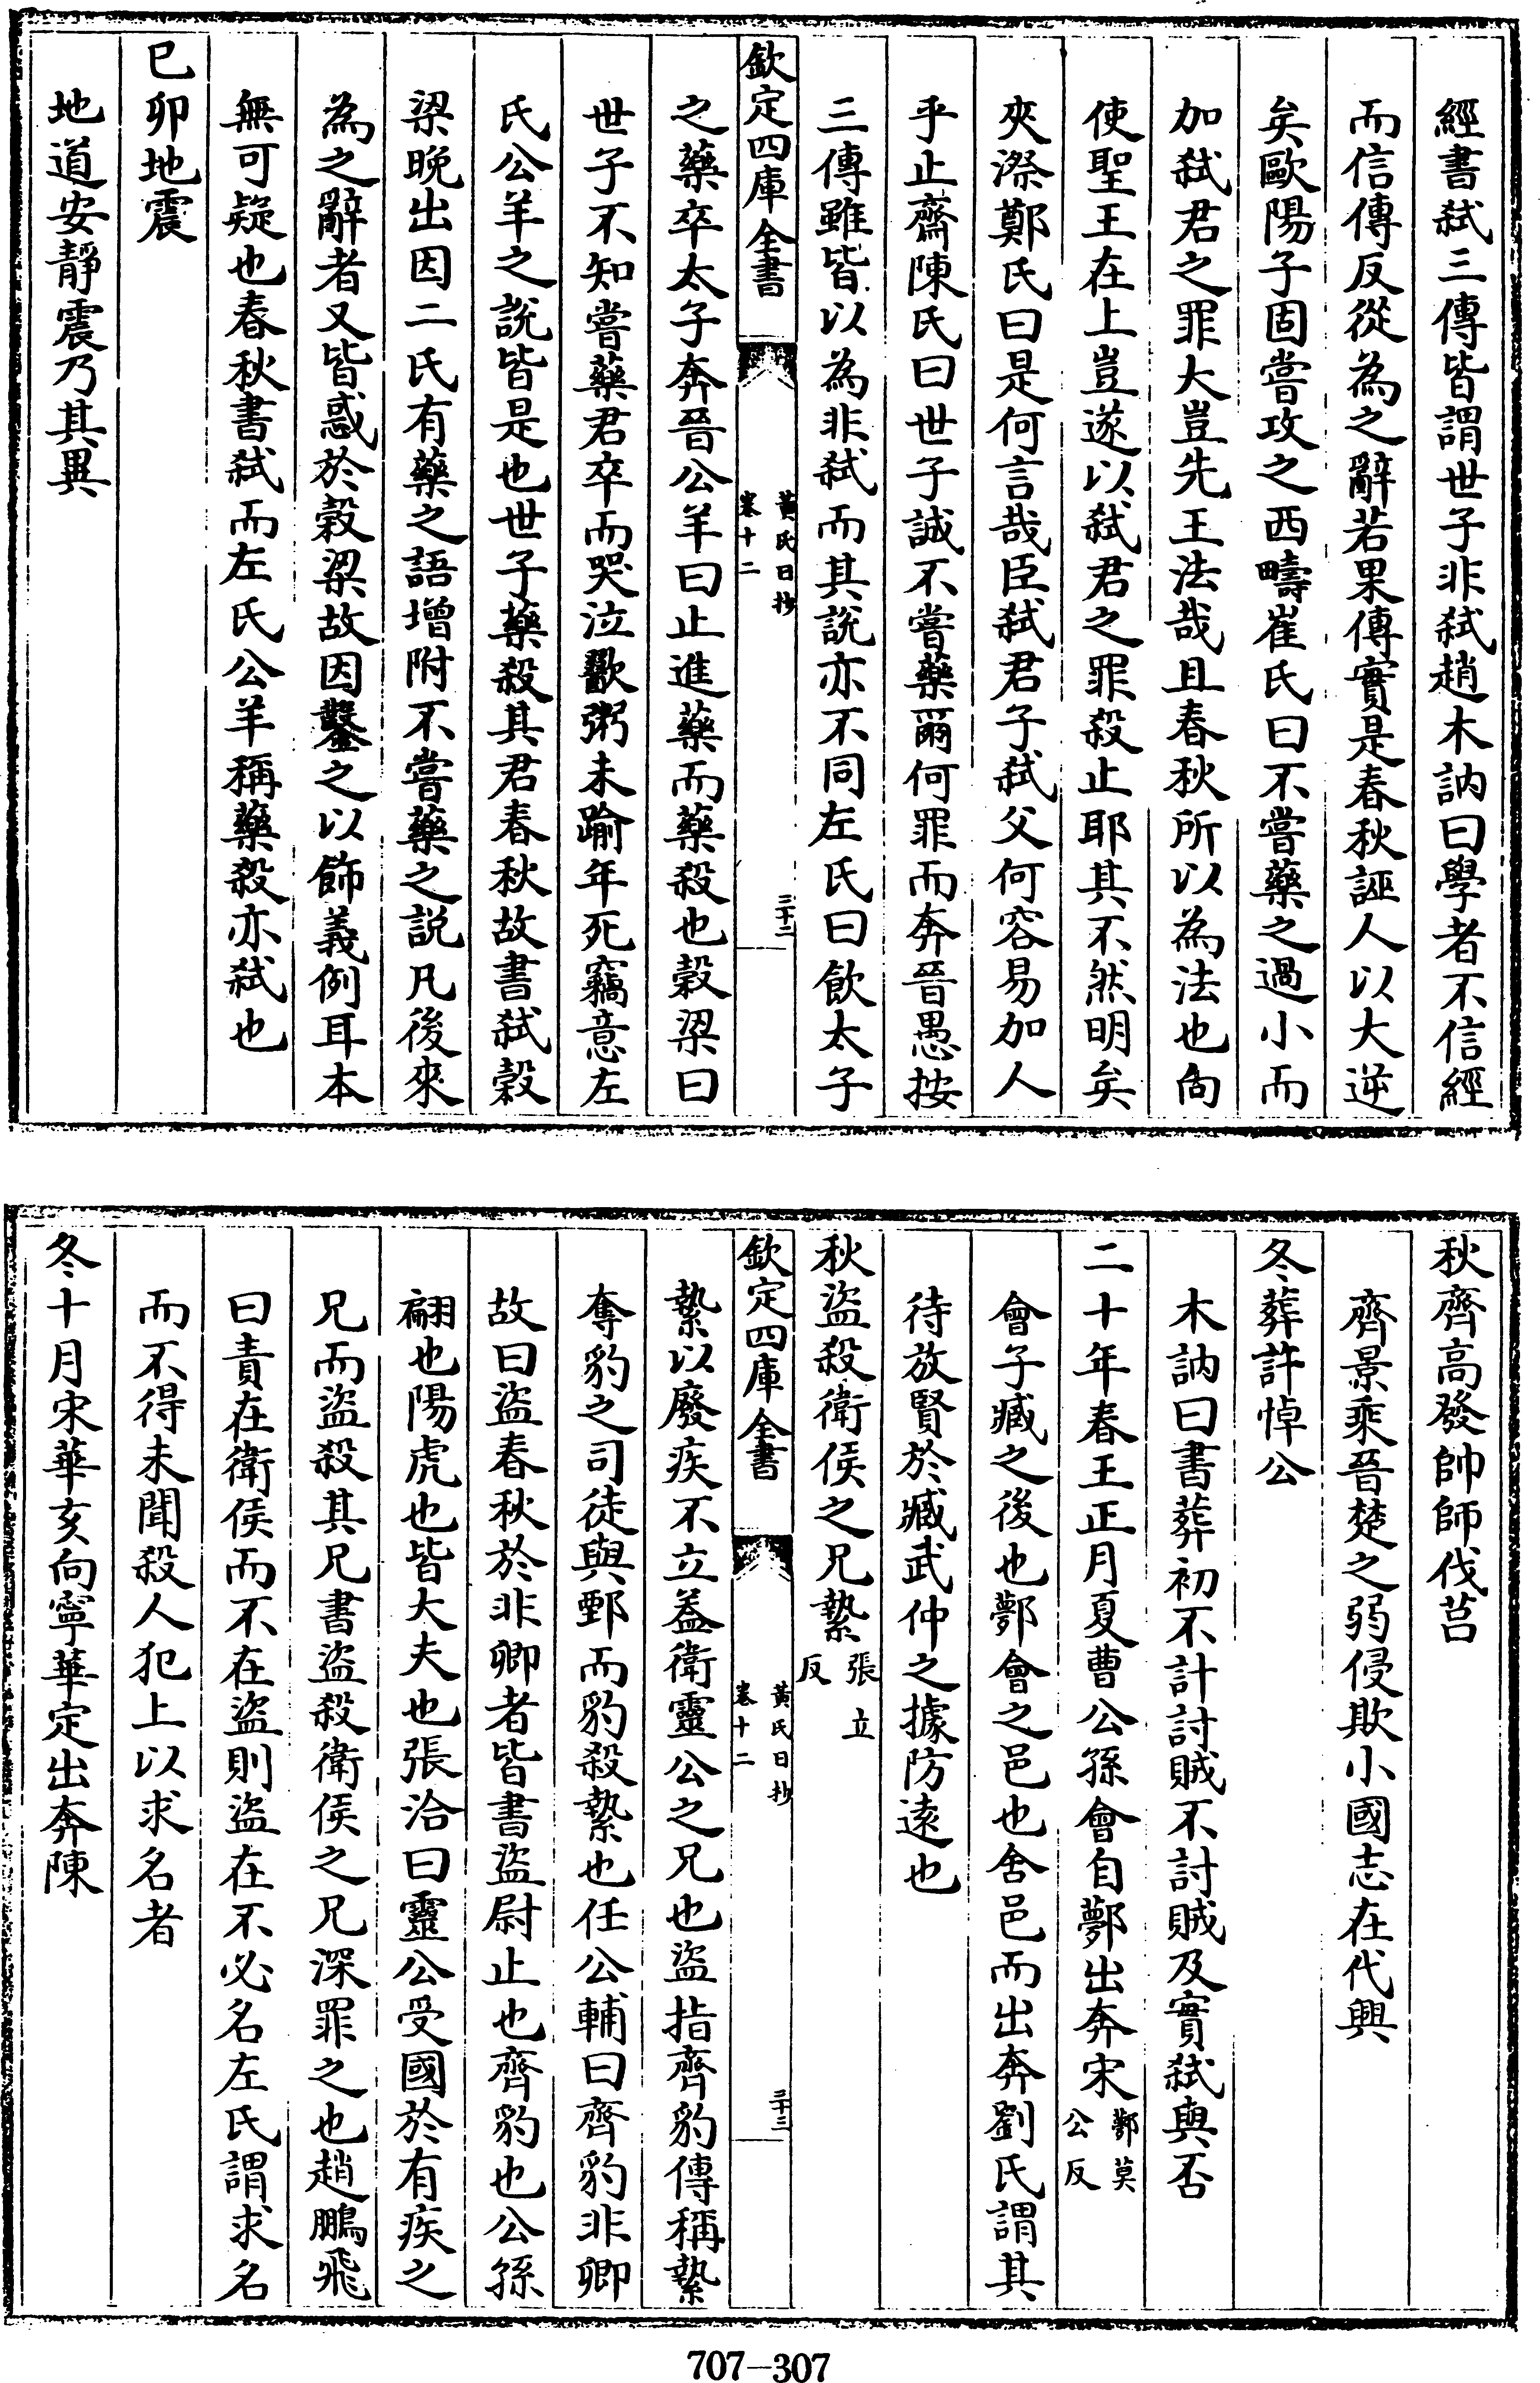 經書弑三傳皆謂世子非弑趙木訥曰學者不信經
而信傳反從為之辭若果傳實是春秋誣人以大逆
矣歐陽子固嘗攻之西疇崔氏曰不嘗藥之過小而
加弑君之罪大豈先王法哉且春秋所以為法也向
使聖王在上豈遂以弑君之罪殺止耶其不然明矣
夾漈鄭氏曰是何言哉臣弑君子弑父何容易加人
乎止齋陳氏曰世子誠不嘗藥爾何罪而奔晉愚按
三傳雖皆以為非弑而其説亦不同左氏曰飲太子
欽定四庫全書
黃氏日抄
卷十二
三十二
之藥卒太子奔晉公羊曰止進藥而藥殺也穀梁曰
世子不知嘗藥君卒而哭泣歠粥未踰年死竊意左
氏公羊之説皆是也世子藥殺其君春秋故書弑穀
梁晚出因二氏有藥之語增附不嘗藥之説凡後來
為之辭者又皆惑於穀梁故因鑿之以飾義例耳本
無可疑也春秋書弑而左氏公羊稱藥殺亦弑也
已卯地震
地道安靜震乃其異
秋齊高發帥師伐莒
齊景乘晉楚之弱侵欺小國志在代興
冬葬許悼公
木訥曰書葬初不計討賊不討賊及實弑與否
二十年春王正月夏曹公孫會自鄸出奔宋鄸莫公反
會子臧之後也鄸會之邑也舍邑而出奔劉氏謂其
待放賢於臧武仲之據防遠也
秋盜殺衛侯之兄縶張立反
欽定四庫全書
黃氏日抄
卷十二
三十三
縶以廢疾不立蓋衛靈公之兄也盜指齊豹傳稱縶
奪豹之司徒與鄄而豹殺縶也任公輔曰齊豹非卿
故曰盜春秋於非卿者皆書盜尉止也齊豹也公孫
翩也陽虎也皆大夫也張洽曰靈公受國於有疾之
兄而盜殺其兄書盜殺衛侯之兄深罪之也趙鵬飛
曰責在衛侯而不在盜則盜在不必名左氏謂求名
而不得未聞殺人犯上以求名者
冬十月宋華亥向寧華定出奔陳
707-307